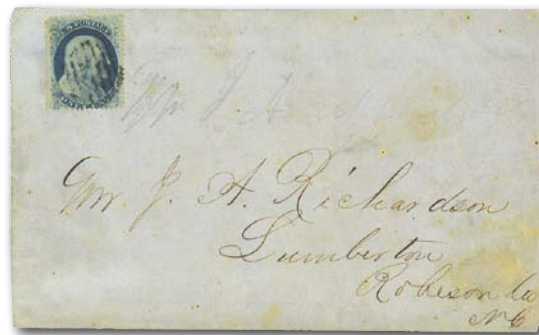 U.S. POSTAGE
ONE CENT
Mr. J. A.
Mr. J. A. Richardson
Lumberton
Robeson Co
N C